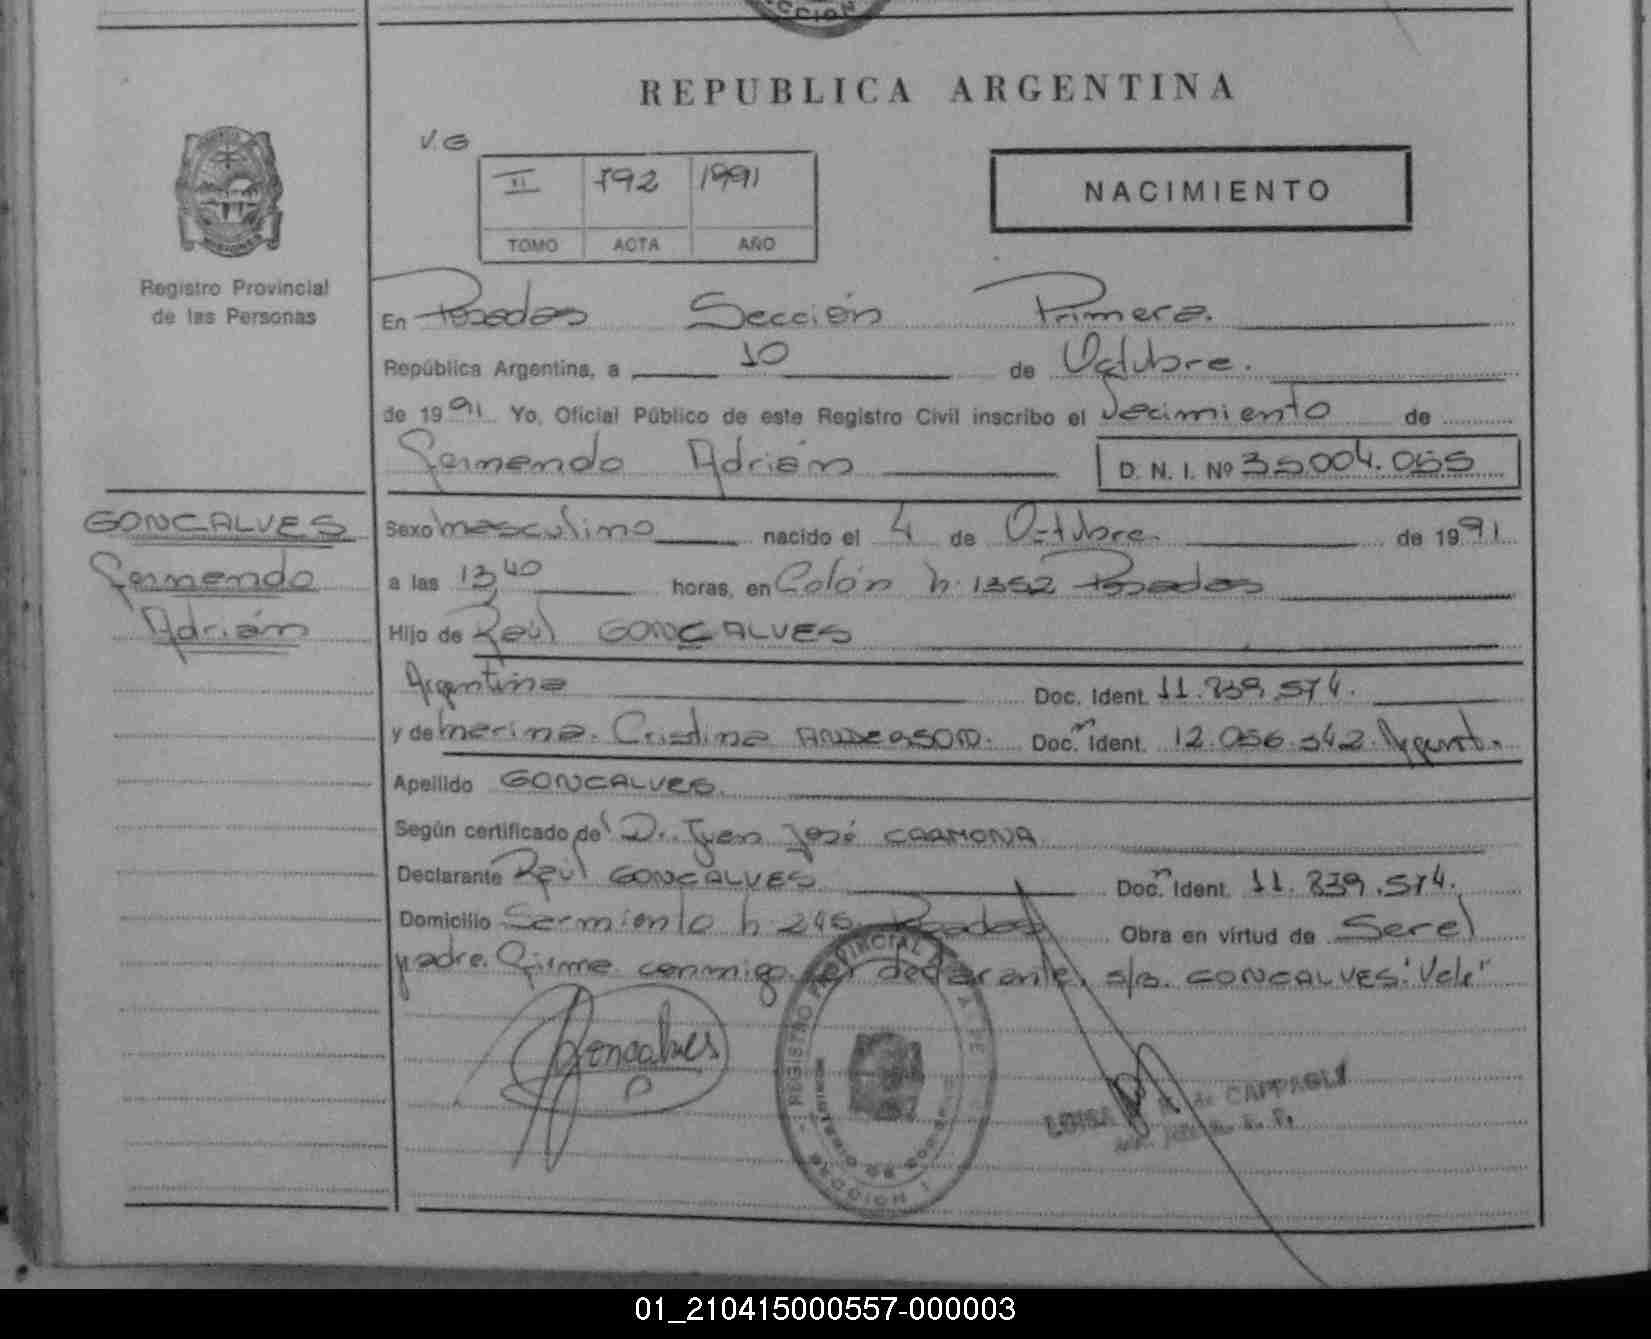 REPUBLICA ARGENTINA
V.G
II 792 1991
TOMO ACTA AÑO
NACIMIENTO
Registro Provincial
de las Personas
En Posadas Sección Primera.
República Argentina, a 10 de Octubre.
de 1991 Yo, Oficial Público de este Registro Civil inscribo el Nacimiento de
Fernando Adrián D. N. I. Nº 35.004.055
GONCALVES
Fernando
Adrián
Sexo masculino nacido el 4 de Octubre. de 1991
a las 13,40 horas, en Colón n. 1352 Posadas
Hijo de Raúl GONCALVES
Argentina Doc. Ident. 11.839.574.
y de Marina Cristina ANDERSON. Doc. Ident. 12.056.342. Argent.
Apellido GONCALVES.
Según certificado de D. Juan José CARMONA
Declarante Raúl GONCALVES Doc. Ident. 11.839.574.
Domicilio Sarmiento n. 245 Posadas Obra en virtud de Ser el
padre. Firma conmigo el declarante, s/b. GONCALVES: "Vale"
Goncalves
REGISTRO PROVINCIAL
de CAPPAGLI
01_210415000557-000003